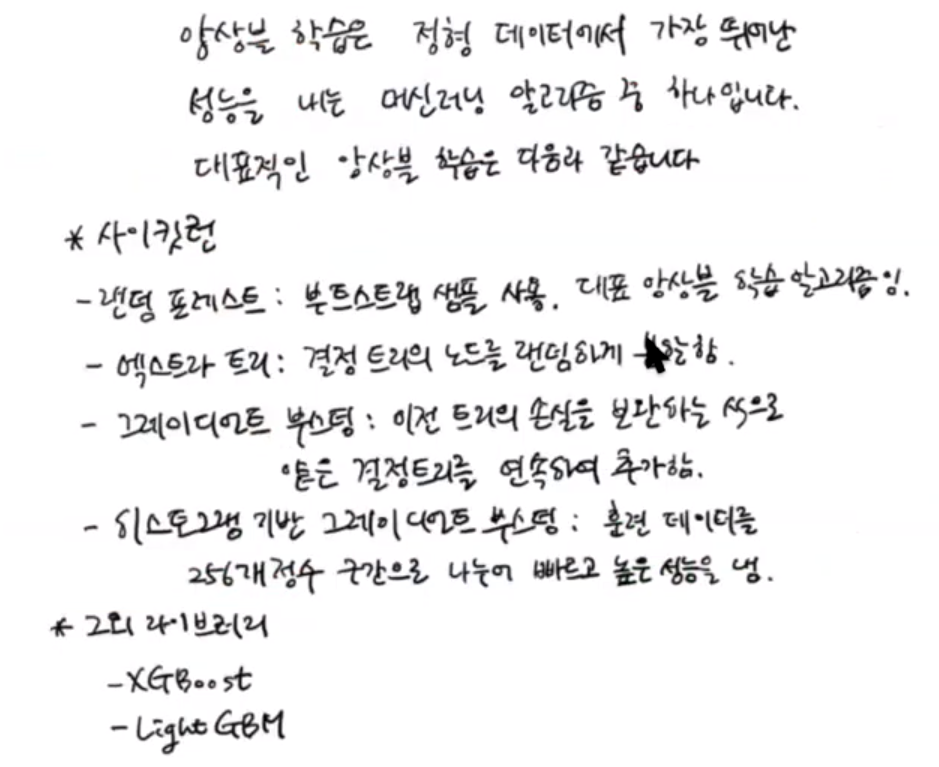 앙상블 학습은 정형 데이터에서 가장 뛰어난
성능을 내는 머신러닝 알고리즘 중 하나입니다.
대표적인 앙상블 학습은 다음과 같습니다
* 사이킷런
- 랜덤 포레스트 : 부트스트랩 샘플 사용. 대표 앙상블 학습 알고리즘임.
- 엑스트라 트리 : 결정 트리의 노드를 랜덤하게
- 그레이디언트 부스팅 : 이전 트리의 손실을 보완하는 식으로
얕은 결정트리를 연속하여 추가함.
- 히스토그램 기반 그레이디언트 부스팅 : 훈련 데이터를
256개 정수 구간으로 나누어 빠르고 높은 성능을 냄.
* 그외 라이브러리
- XGBoost
- Light GBM